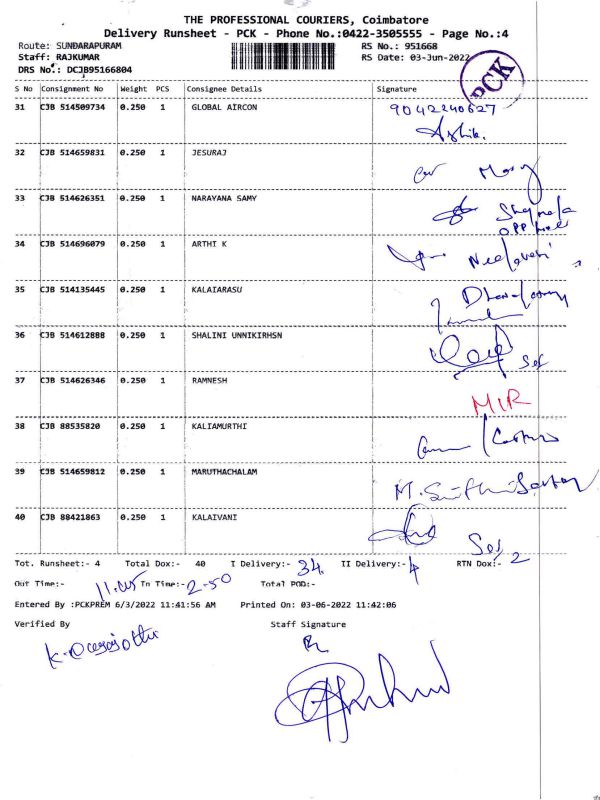 THE PROFESSIONAL COURIERS, Coimbatore
Delivery Runsheet - PCK - Phone No.:0422-3505555 - Page No.:4
Route: SUNDARAPURAM RS No.: 951668
Staff: RAJKUMAR RS Date: 03-Jun-2022
DRS No.: DCJB95166804
PCK
S No Consignment No Weight PCS Consignee Details Signature
31 CJB 514509734 0.250 1 GLOBAL AIRCON 9042240627
32 CJB 514659831 0.250 1 JESURAJ
33 CJB 514626351 0.250 1 NARAYANA SAMY
34 CJB 514696079 0.250 1 ARTHI K
35 CJB 514135445 0.250 1 KALAIARASU
36 CJB 514612888 0.250 1 SHALINI UNNIKIRHSN
37 CJB 514626346 0.250 1 RAMNESH
MIR
38 CJB 88535820 0.250 1 KALIAMURTHI
39 CJB 514659812 0.250 1 MARUTHACHALAM
40 CJB 88421863 0.250 1 KALAIVANI
Tot. Runsheet:- 4 Total Dox:- 40 I Delivery:- 34 II Delivery:- 4 RTN Dox:- 2
Out Time:- 11.05 In Time:- 2-50 Total POD:-
Entered By :PCKPREM 6/3/2022 11:41:56 AM Printed On: 03-06-2022 11:42:06
Verified By Staff Signature